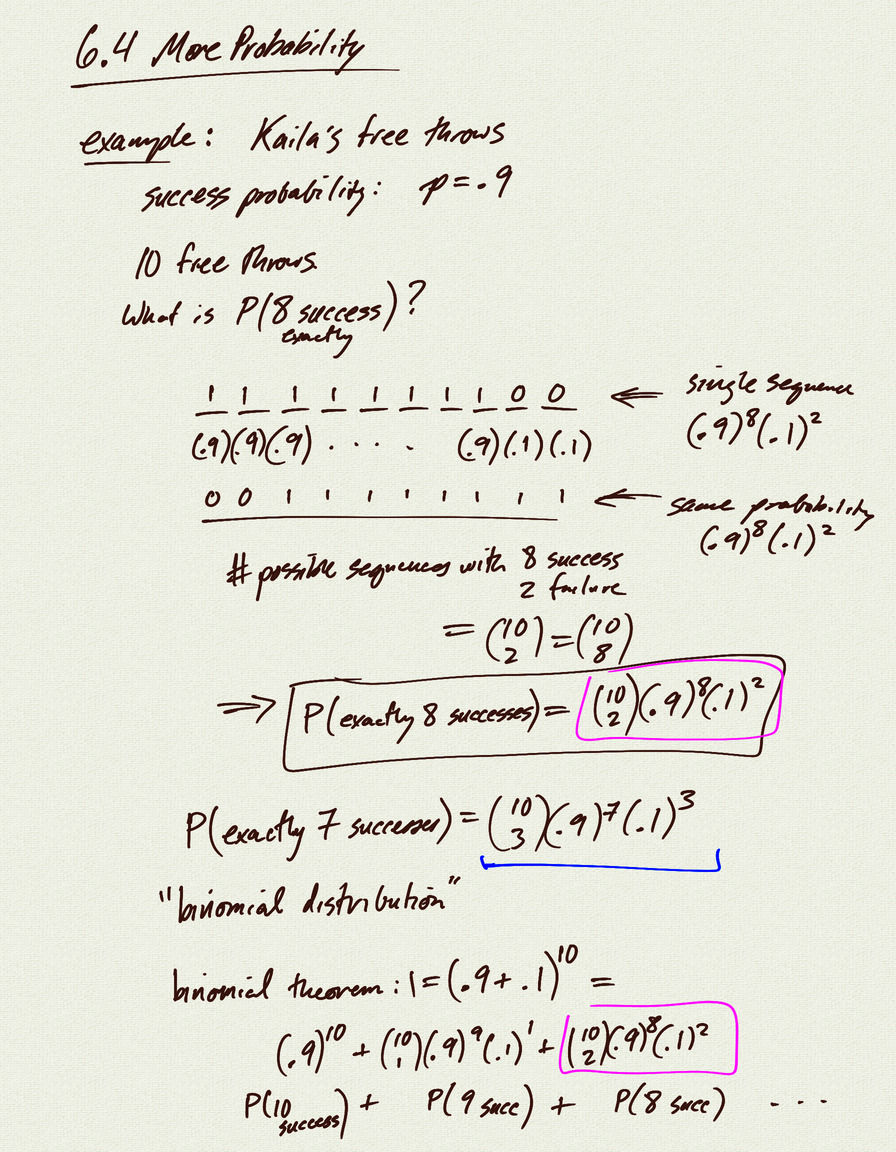 6.4 More Probability
example: Kaila's free throws
success probability: p = .9
10 free throws.
What is P(8 success)?
exactly
1 1 1 1 1 1 1 1 0 0 ⟸ single sequence
(.9)(.9)(.9) . . . . (.9)(.1)(.1) (.9)^8(.1)^2
0 0 1 1 1 1 1 1 1 1 ⟸ same probability
(.9)^8(.1)^2
# possible sequences with 8 success
2 failure
= (10 2) = (10 8)
⟹ P(exactly 8 successes) = (10 2)(.9)^8(.1)^2
P(exactly 7 successes) = (10 3)(.9)^7(.1)^3
"binomial distribution"
binomial theorem: 1 = (.9 + .1)^10 =
(.9)^10 + (10 1)(.9)^9(.1)^1 + (10 2)(.9)^8(.1)^2
P(10 success) + P(9 succ) + P(8 succ) - - -